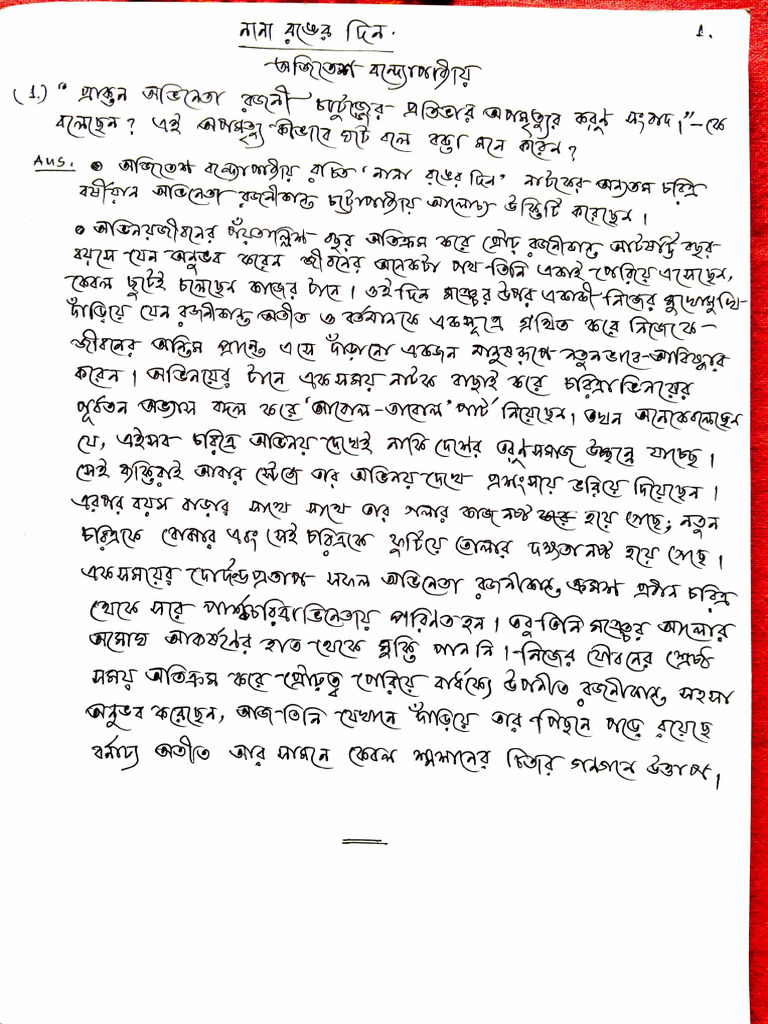 নানা রঙের দিন.
1.
অজিতেশ বন্দ্যোপাধ্যায়
(1.) " প্রাক্তন অভিনেতা রজনী চাটুজ্জের প্রতিভার অপমৃত্যুর করুণ সংবাদ।" – কে
বলেছেন? এই অপমৃত্যু কীভাবে ঘটে বলে বক্তা মনে করেন?
Aus: • অজিতেশ বন্দ্যোপাধ্যায় রচিত 'নানা রঙের দিন' নাটকের অন্যতম চরিত্র
বর্ষীয়ান অভিনেতা রজনীকান্ত চট্টোপাধ্যায় আলোচ্য উক্তিটি করেছেন।
• অভিনয়জীবনের পঁয়তাল্লিশ বছর অতিক্রম করে প্রৌঢ় রজনীকান্ত আটষট্টি বছর
বয়সে যেন অনুভব করেন জীবনের অনেকটা পথ তিনি একাই পেরিয়ে এসেছেন,
কেবল ছুটেই চলেছেন কাজের টানে। ওইদিন মঞ্চের উপর একাকী নিজের মুখোমুখি
দাঁড়িয়ে যেন রজনীকান্ত অতীত ও বর্তমানকে একসূত্রে গ্রথিত করে নিজেকে –
জীবনের অন্তিম প্রান্তে এসে দাঁড়ানো একজন মানুষরূপে নতুনভাবে আবিষ্কার
করেন। অভিনয়ের টানে একসময় নাটক বাছাই করে চরিত্রাভিনয়ের
পূর্বতন অভ্যাস বদল করে 'আবোল-তাবোল' পার্ট নিয়েছেন। তখন অনেকে বলেছেন
যে, এইসব চরিত্রে অভিনয় দেখেই নাকি দেশের তরুণসমাজ উচ্ছন্নে যাচ্ছে।
সেই ব্যক্তিরাই আবার স্টেজে তার অভিনয় দেখে প্রশংসায় ভরিয়ে দিয়েছেন।
এরপর বয়স বাড়ার সাথে সাথে তার গলার কাজ নষ্ট হয়ে গেছে; নতুন
চরিত্রকে বোঝার এবং সেই চরিত্রকে ফুটিয়ে তোলার দক্ষতা নষ্ট হয়ে গেছে।
একসময়ের দোর্দন্ডপ্রতাপ সফল অভিনেতা রজনীকান্ত ক্রমশ প্রধান চরিত্র
থেকে সরে পার্শ্বচরিত্রাভিনেতায় পরিনত হন। তবু তিনি মঞ্চের আলোর
অমোঘ আকর্ষনের হাত থেকে মুক্তি পাননি। নিজের যৌবনের শ্রেষ্ঠ
সময় অতিক্রম করে প্রৌঢ়ত্ব পেরিয়ে বার্ধক্যে উপনীত রজনীকান্ত সহসা
অনুভব করেছেন, আজ তিনি যেখানে দাঁড়িয়ে তার পিছনে পড়ে রয়েছে
বর্নাঢ্য অতীত আর সামনে কেবল শ্মশানের চিতার গনগনে উত্তাপ।